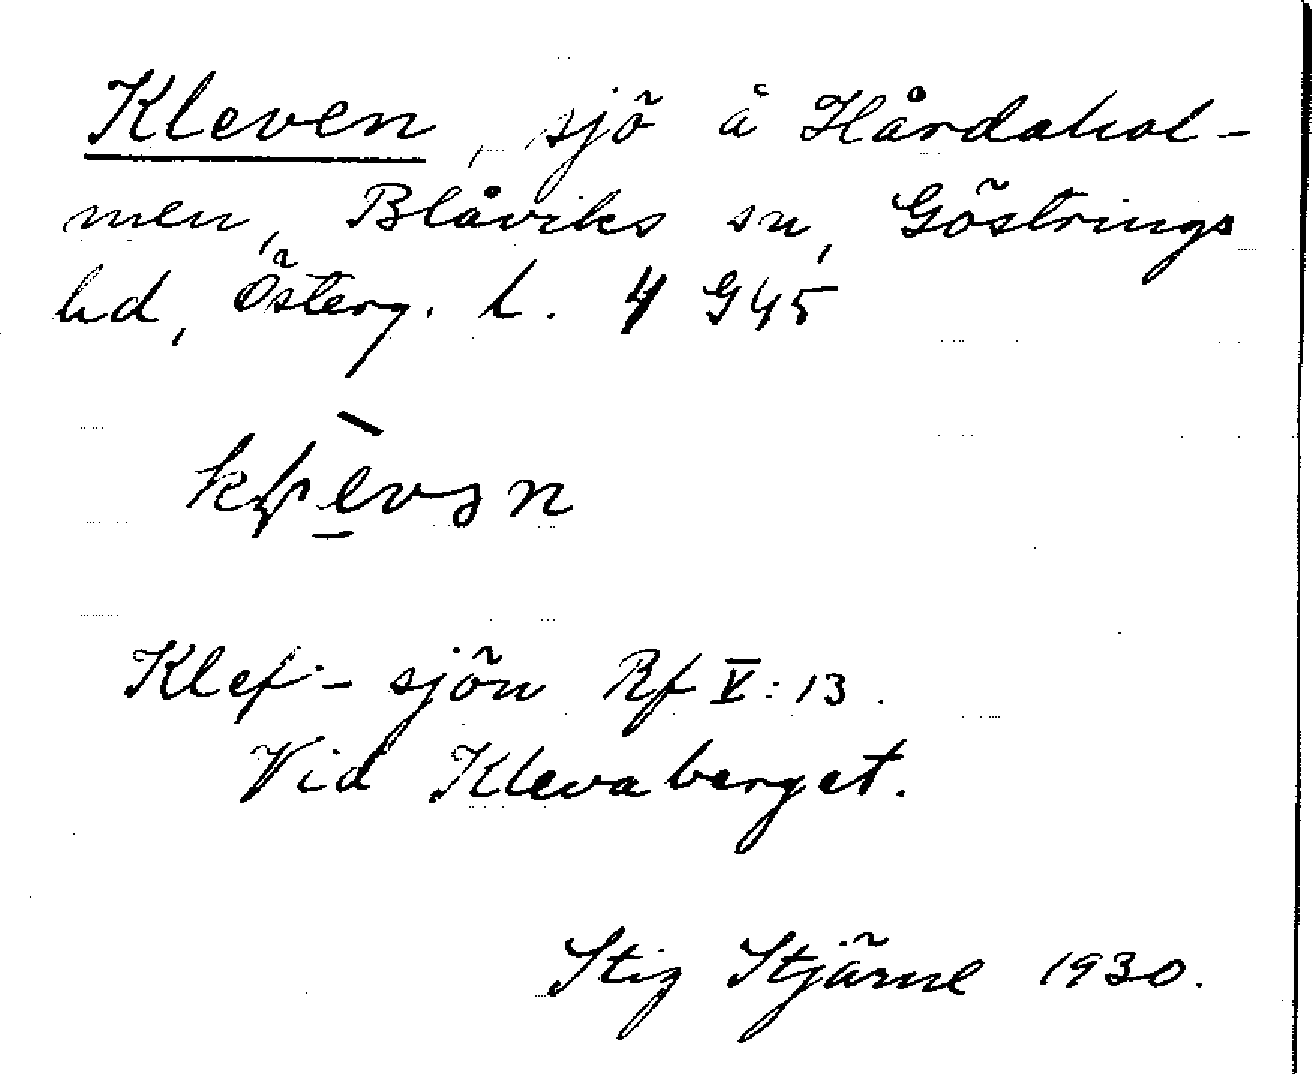 Kleven, sjö å Hårdahol-
men, Blåviks sn, Göstrings
hd, Österg. l. 4 G45
Klef-sjön Rf V:13.
Vid Klevaberget.
Stig Stjärne 1930.